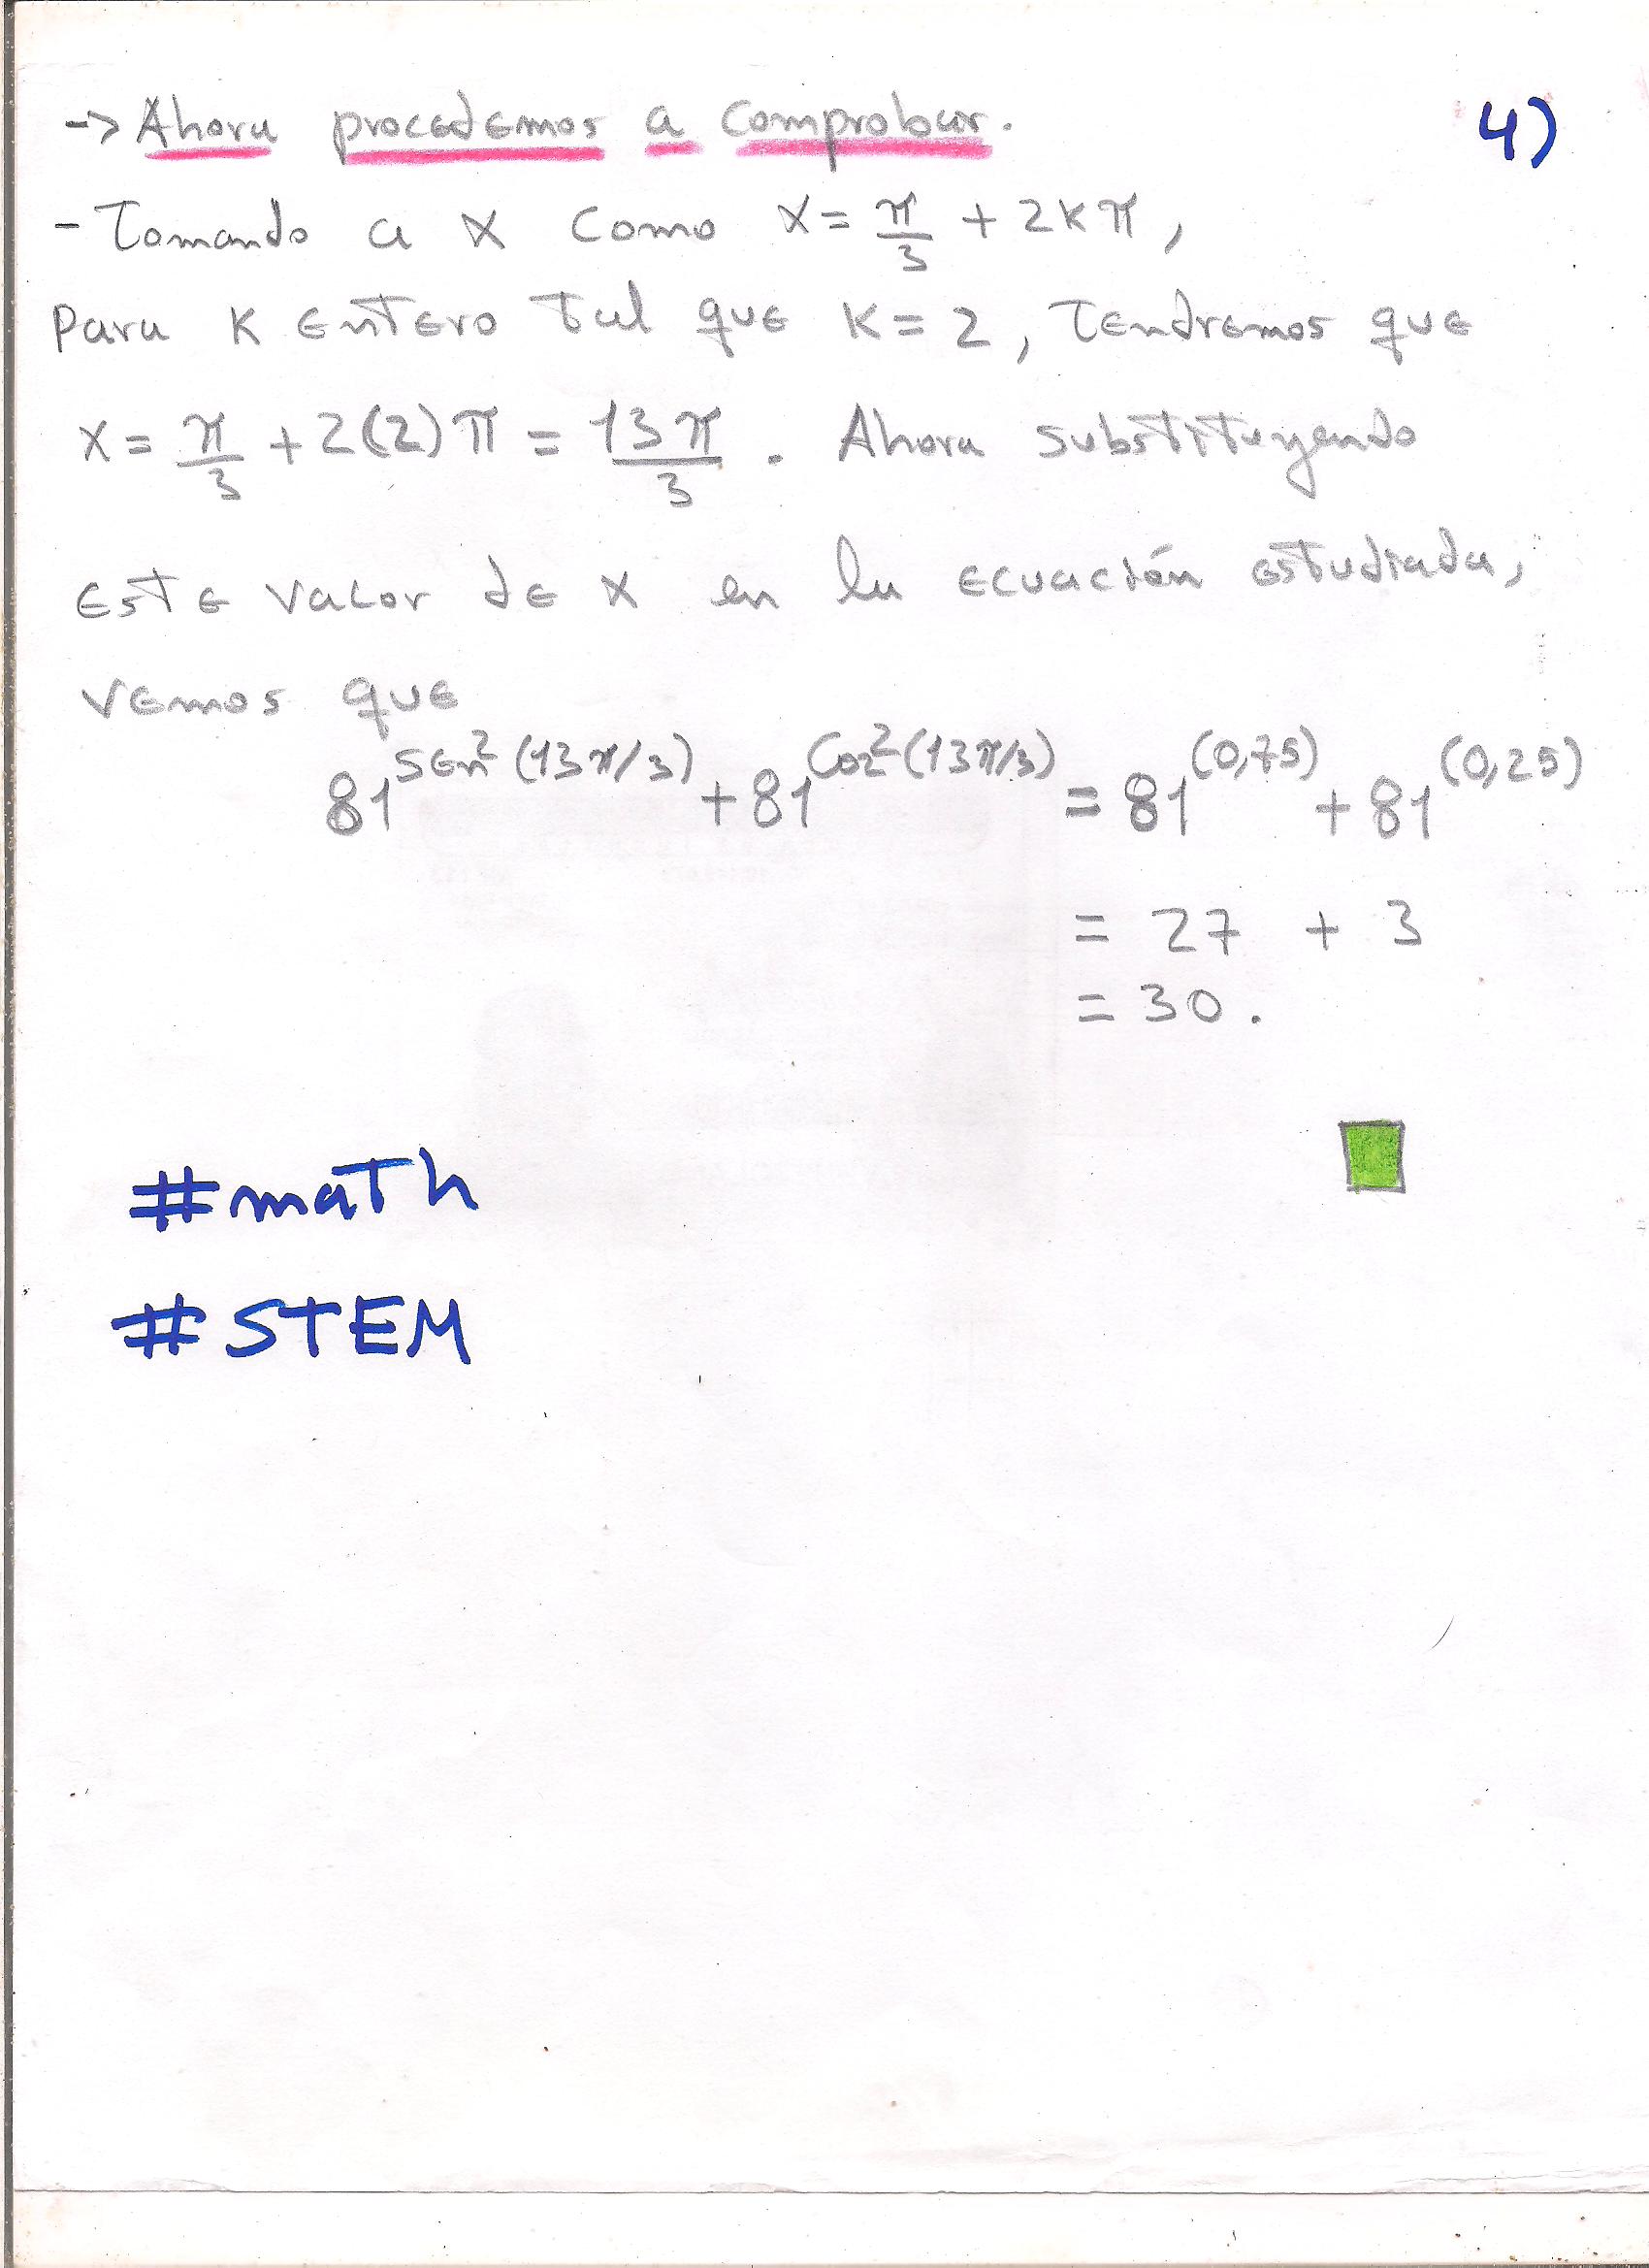 -> Ahora procedemos a comprobar. 4)
- Tomando a x como x = π/3 + 2kπ,
Para k entero tal que k = 2, tendremos que
x = π/3 + 2(2)π = 13π/3 . Ahora substituyendo
este valor de x en la ecuación estudiada,
vemos que
81^sen²(13π/3) + 81^cos²(13π/3) = 81^(0,75) + 81^(0,25)
= 27 + 3
= 30.
#math
#STEM